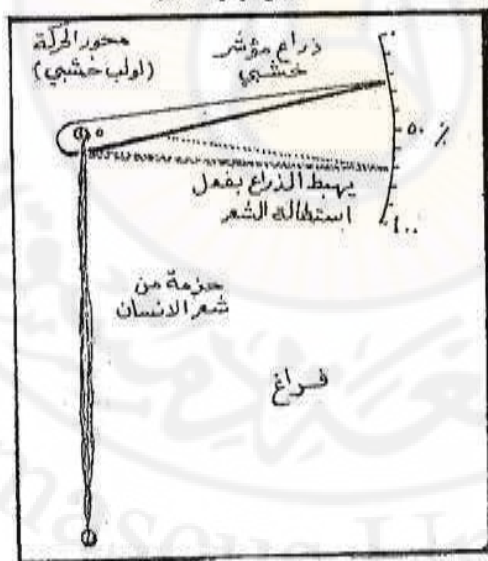 محور الحركة
(لولب خشبي)
ذراع مؤشر
خشبي
٠
٥٠ %
١٠٠
يهبط الذراع بفعل
استطالة الشعر
حزمة من
شعر الانسان
فراغ